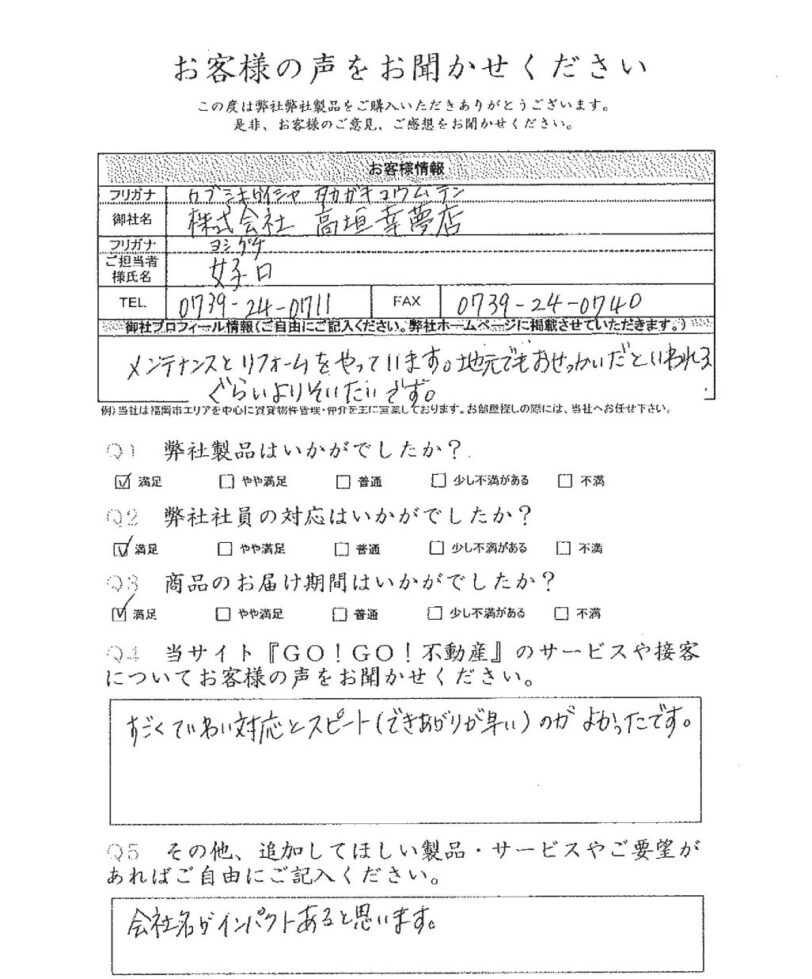 お客様の声をお聞かせください
この度は弊社弊社製品をご購入いただきありがとうございます。
是非、お客様のご意見、ご感想をお聞かせください。
お客様情報
フリガナ カブシキガイシャ タカガキコウムテン
御社名 株式会社 高垣幸夢店
フリガナ ヨシグチ
ご担当者様氏名 好口
TEL 0739-24-0711 FAX 0739-24-0740
御社プロフィール情報(ご自由にご記入ください。弊社ホームページに掲載させていただきます。)
メンテナンスとリフォームをやっています。地元でもおせっかいだといわれる
ぐらいよりそいたいです。
例)当社は福岡市エリアを中心に賃貸物件管理・仲介を主に営業しております。お部屋探しの際には、当社へお任せ下さい。
Q1 弊社製品はいかがでしたか?
☑ 満足 □ やや満足 □ 普通 □ 少し不満がある □ 不満
Q2 弊社社員の対応はいかがでしたか?
☑ 満足 □ やや満足 □ 普通 □ 少し不満がある □ 不満
Q3 商品のお届け期間はいかがでしたか?
☑ 満足 □ やや満足 □ 普通 □ 少し不満がある □ 不満
Q4 当サイト『GO!GO!不動産』のサービスや接客
についてお客様の声をお聞かせください。
すごくていねい対応とスピート(できあがりが早い)のが よかったです。
Q5 その他、追加してほしい製品・サービスやご要望が
あればご自由にご記入ください。
会社名がインパクトあると思います。